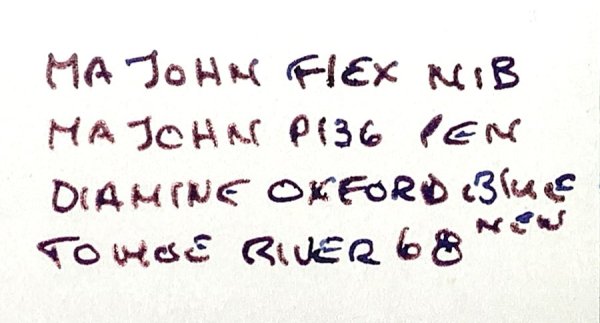 MAJOHN FlEX NIB
MAJOHN P136 PEN
DIAMINE OXFORD Blue
TOMOE RIVER 68 NEW